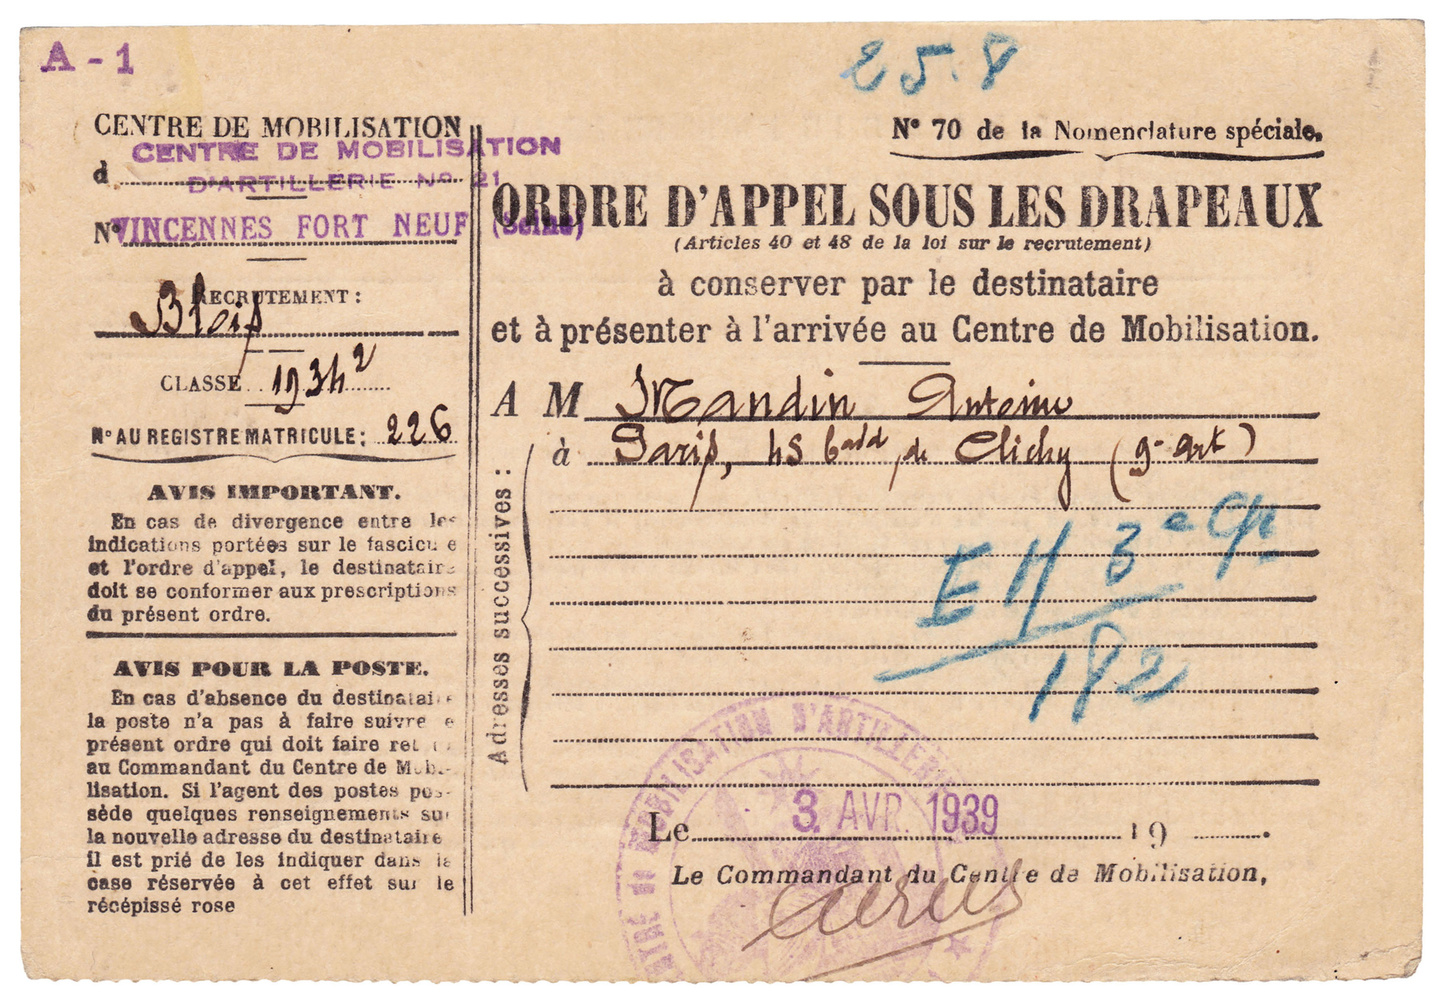 A - 1
25.8
CENTRE DE MOBILISATION
CENTRE DE MOBILISATION
d
D'ARTILLERIE No 21
N° VINCENNES FORT NEUF (Seine)
RECRUTEMENT :
Blois
CLASSE 1934 2
N° AU REGISTRE MATRICULE : 226
AVIS IMPORTANT.
En cas de divergence entre les
indications portées sur le fascicule
et l'ordre d'appel, le destinataire
doit se conformer aux prescriptions
du présent ordre.
AVIS POUR LA POSTE.
En cas d'absence du destinataire
la poste n'a pas à faire suivre le
présent ordre qui doit faire retour
au Commandant du Centre de Mobi-
lisation. Si l'agent des postes pos-
sède quelques renseignements sur
la nouvelle adresse du destinataire
il est prié de les indiquer dans la
case réservée à cet effet sur le
récépissé rose
N° 70 de la Nomenclature spéciale.
ORDRE D'APPEL SOUS LES DRAPEAUX
(Articles 40 et 48 de la loi sur le recrutement)
à conserver par le destinataire
et à présenter à l'arrivée au Centre de Mobilisation.
A M Mandin Antoine
Adresses successives :
à Paris, 45 bould de Clichy (9e Art)
EH 3e
182
MOBILISATION D'ARTILLERIE
Le 3 AVR. 1939 19 .
Le Commandant du Centre de Mobilisation,